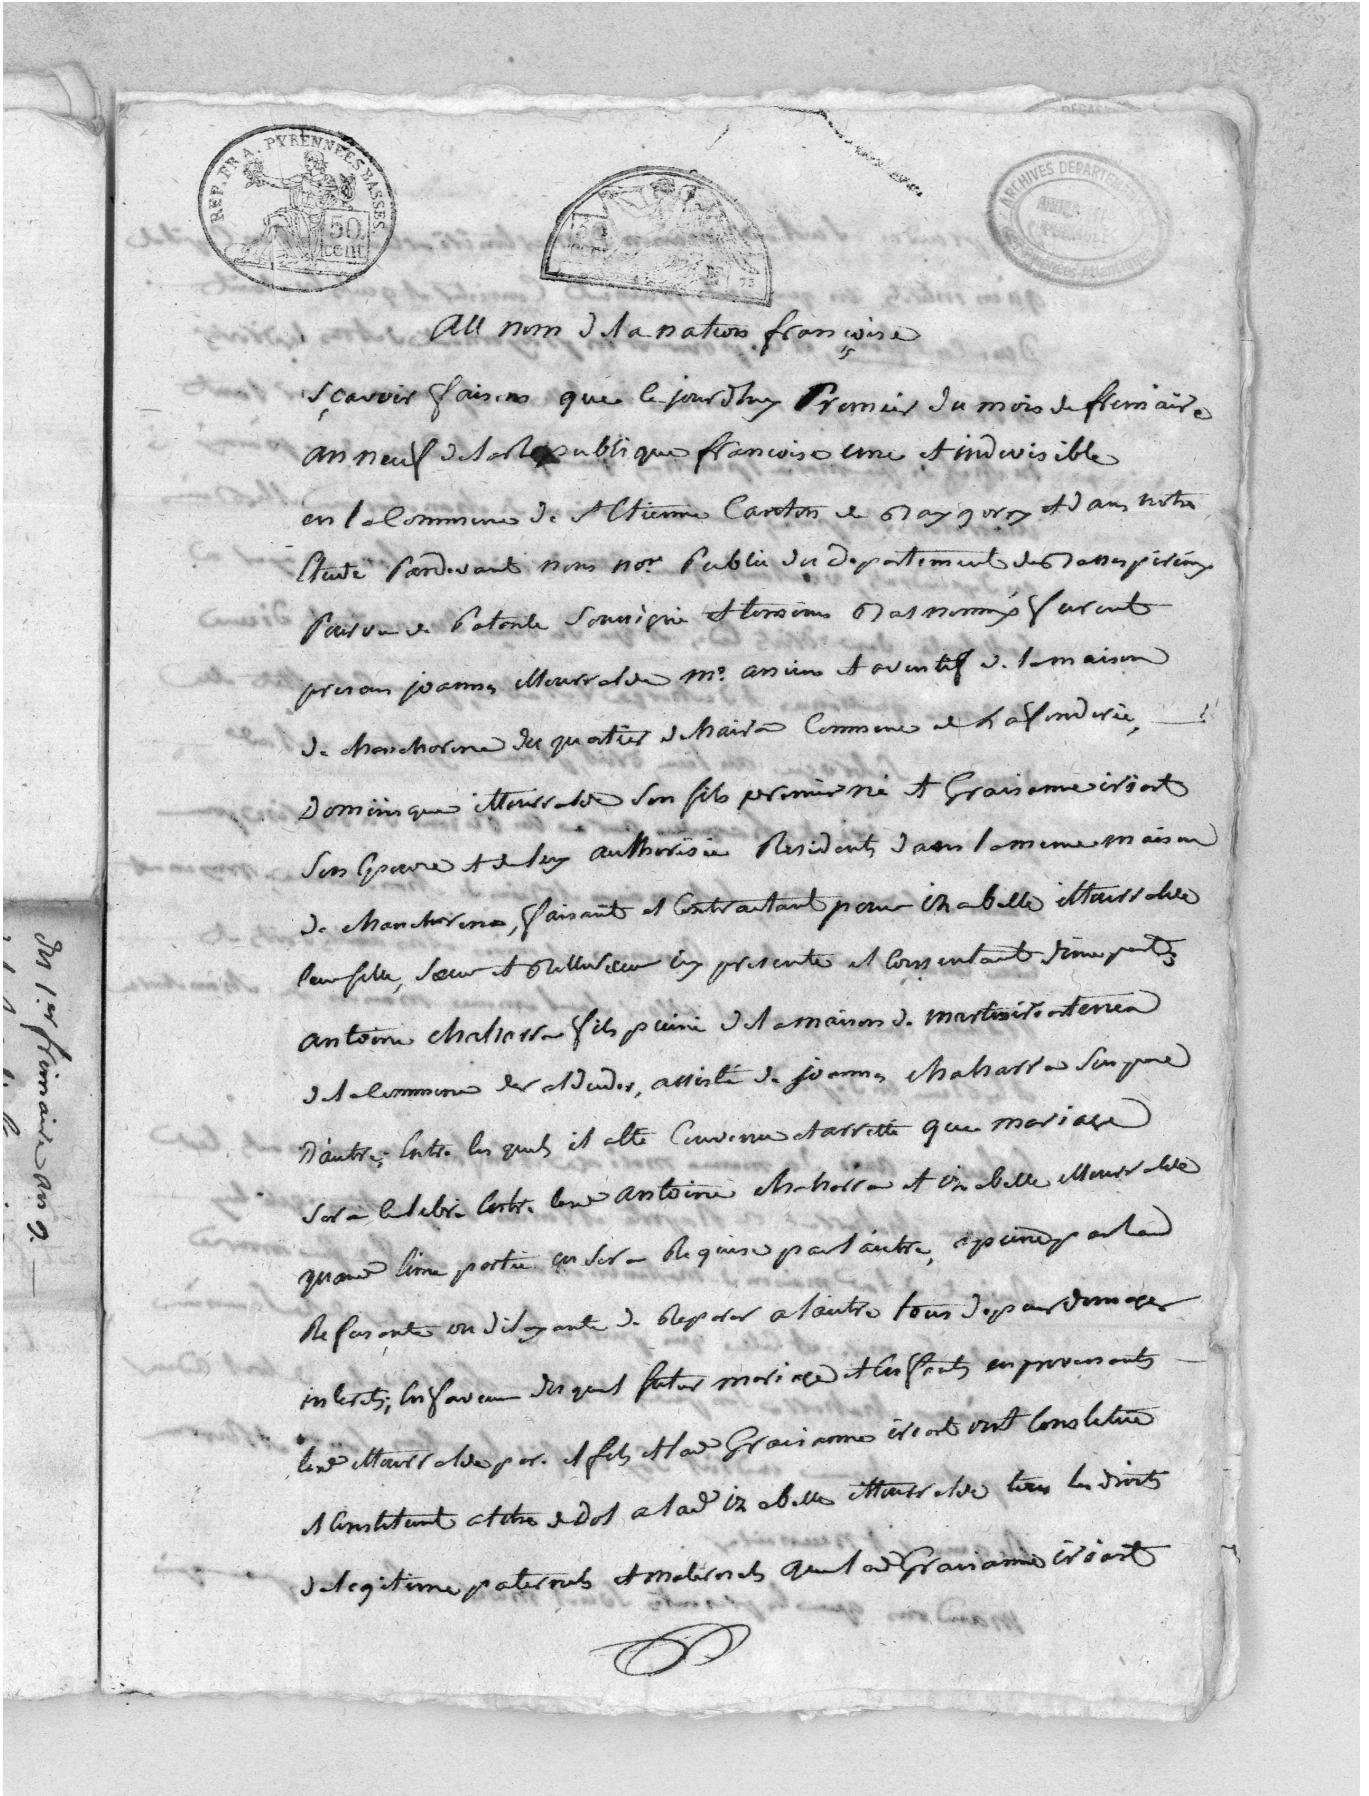 REP. FRA. PYRENNEES BASSES
50
cent
50
cent
75
ARCHIVES DEPARTEMENTALES
Au nom de la nation françoise
Sçavoir faisons que cejourdhuy Premier du mois de frimaire
an neuf de la Republique francoise une et indivisible
en la Commune de St Etienne Canton de Baygorry et dans notre
Etude Pardevant nous nore Public du departement des Basses pirénnés
Pourvu de Patente Soussigné et temoins Bas nommés furent
presens joannes Iturralde me ancien et aventif de la maison
de du quartier Commune de La fonderie,
Dominique itturralde son fils premier né et Graisanne iriart
son Epouse et de luy authorisée Residents dans la meme maison
de faisant et Contractant pour izabelle itturralde
leur fille, sœur et Bellesœur icy presente et Consentante d'une part;
antoine chaharra fils puiné de la maison de martinirartenea
de la Commune des aldudes, assisté de joannes chaharra son pere
D'autre; Entre les quels il a été Convenu et arretté que mariage
sera Celebré Entre led antoine chaharra et izabelle itturralde
quand l'une partie en sera Requise par l'autre, a peine par la
Refusante ou dilayante de Reparer a l'autre tous depens domages
interets; En faveur du quel futur mariage et Enfants en provenants
led itturralde pere et fils et lad Graisanne iriart ont Constitué
et Constituent a titre de Dot a lad izabelle itturralde tous les droits
de legitime paternels et maternels que lad Graisanne iriart
du 1er frimaire an 9.